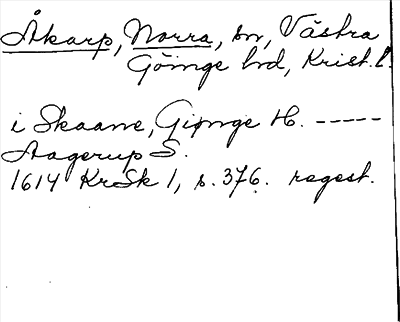 Åkarp, Norra, sn, Västra
Göinge hd, Krist. l.
i Skaane, Giønge H. -----
Aagerup S.
1614 KrSk 1, s. 376. regest.